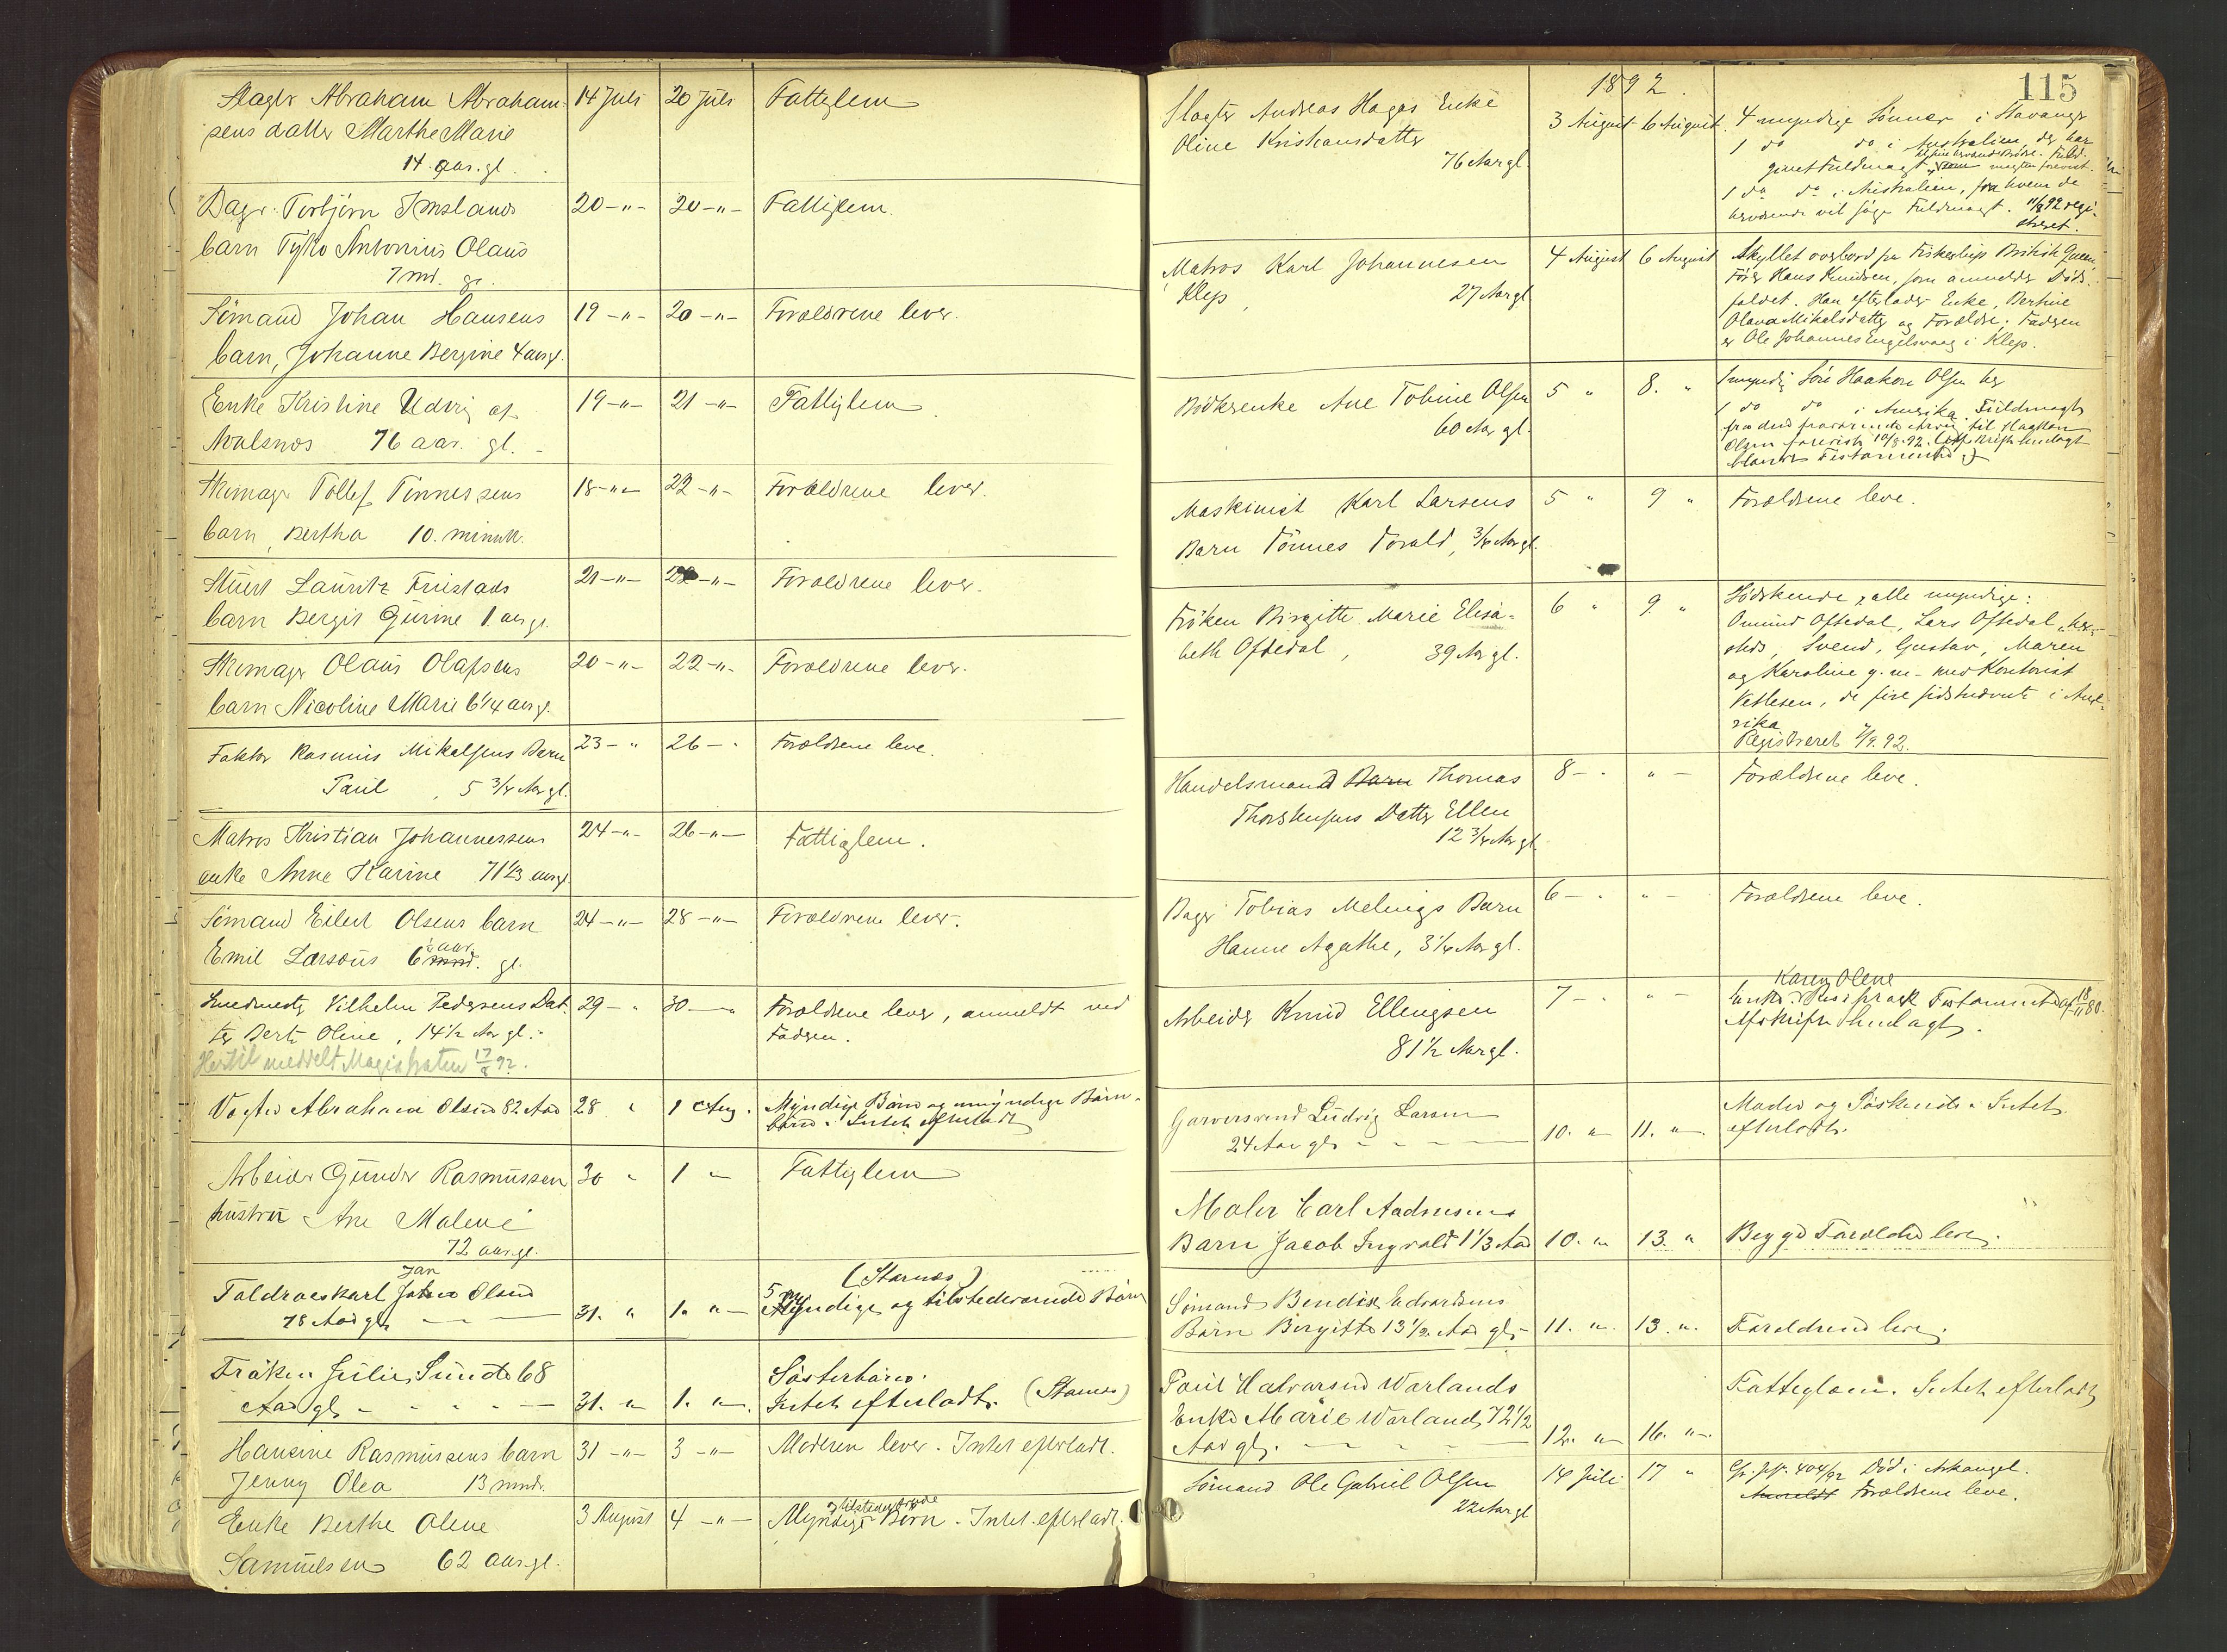 Slagter Abraham Abraham- 14 Juli 20 Juli Fattiglem
sens datter Marthe Marie
14 aar. gl.
Bager Torbjörn Imslands 20 -"- 20 -"- Fattiglem.
barn Tyko Antonius Olaus
7 md. gl.
Sömand Johan Hansens 19 -"- 20 -"- Forældrene lever.
barn, Johanne Bergine 4 aar gl.
Enke Kristine Udvig af 19 -"- 21 -"- Fattiglem.
76 aar. gl.
Skomager Tollef Tönnessens 18 -"- 22 -"- Forældrene lever.
barn, Bertha 10. minutt.
Stuert Lauritz Tristads 21 -"- 22 -"- Forældrene lever.
barn Bergit Gurine 1. aar gl.
Skomager Olaus Olafsens 20 -"- 22 -"- Forældrene lever.
barn Nicoline Marie 6 1/4 aar gl.
Faktor Rasmus Mikalsens Barn 23 - " 26 - " Forældrene leve.
Paul, 5 3/4 Aar gl.
Matros Kristian Johannessens 24 -"- 26 -"- Fattiglem.
enke Anne Karine 71 1/3 aar gl.
Sömand Eilert Olsens barn 24 -"- 28 -"- Forældrene lever.
Emil Larsous 6 aar mnd. gl.
Smedmester Vilhelm Pedersens Dat- 29 - " 30 - " Forældrene lever, anmeldt ved
ter Berte Oline, 14 1/2 Aar gl. Faderen.
Hertil meddelt Magistraten 17/8 92.
Vægter Abraham Olsen 82 Aar 28 " 1 Aug. Myndige Börn og umyndige Börne-
börn. Intet efterladt
Arbeider Gunder Rasmussen 30 " 1 " Fattiglem
hustru Ane Malene
72 aar gl.
Jan (Starnes)
Toldroerskarl John Olsen 31. " 1. " 5 Myndige og tilstedeværende Börn
78 Aar gl.
Fröken Julie Sundt 68 Sösterbörn.
Aar gl. 31. " 1. " Intet efterladt. (Starnes)
Hansine Rasmussens barn 31 -"- 3 -"- Moderen lever. Intet efterladt.
Jenny Olea 13 mndr.
Enke Berthe Olene 3 August 4 -"- Myndige tilstedeværende Börn. Intet efterladt.
Samuelsen 62 aar gl.
115
1892.
Slagter Andreas Hagas Enke 3 August 6 August. 4 myndige Sönner i Stavanger
Oline Kristiansdatter 1 do do i Australien, der har
76 Aar gl. givet Fuldmagt
1 do do i Australien, fra hvem de
herværende vil söge Fuldmagt. 11/8 92 regi-
streret.
Matros Karl Johannesen 4 August 6 August Skyllet overbord fra Fiskeskip British Queen
Klep, 27 Aar gl Förer Hans Knudsen, som anmelder Döds-
faldet. Han efterlader Enke, Bertine
Olava Mikalsdatter og Forældre; Faderen
er Ole Johannes Engelsvaag i Klep.
Bödkerenke Ane Tobine Olsen 5 " 8. " 1 myndig Sön Haakon Olsen her
60 Aar gl. 1 do do i Amerika. Fuldmagt
fra den fraværende Arving til Haakon
Olsen forevist 10/8. 92. (Afskrift henlagt
blandt Testamenter)
Maskinist Karl Larsens 5 " 9 " Forældrene leve.
Barn Tönnes Torald, 3/4 Aar gl.
Fröken Birgitte Marie Elisa- 6 " 9. " Södskende, alle myndige:
beth Oftedal, 39 Aar gl. Omund Oftedal, Lars Oftedal, her-
steds, Svend, Gustav, Maren
og Karoline g. m. med Kontorist
Vetlesen, de fire sidstnævnte i Ame-
rika
Registreret 2/9. 92.
Handelsmand Barn Thomas 8 - " " - Forældrene leve.
Thorstensens Datter Ellen
12 3/4 Aar gl.
Bager Tobias Melings Barn 6 - " " - Forældrene leve.
Hanne Agathe, 3 1/4 Aar gl.
Karen Olene
Arbeider Knud Ellingsen 7 - " " - Enke. Resiprock Testament af 18/11 80.
81 1/2 Aar gl. Afskrift henlagt.
Garversvend Ludvig Larsen Moder og Söskende. Intet
24 Aar gl. 10. " 11. " efterladt.
Maler Carl Aadnesens
Barn Jacob Ingvald 1 1/3 Aar 10. " 13. " Begge Forældre leve.
Sömand Bendix Edvardsens
Barn Birgitte 13 1/2 Aar gl. 11. " 13. " Forældrene leve.
Poul Halvorsen Warlands Fattiglem. Intet efterladt
Enke Marie Warland, 72 1/2
Aar gl. 12. " 16. "
Sömand Ole Gabriel Olsen 14 Juli 17 " Cfr. jnr. 404/92 Död i Arkangel.
22 Aar gl Anmeldt Forældrene leve.